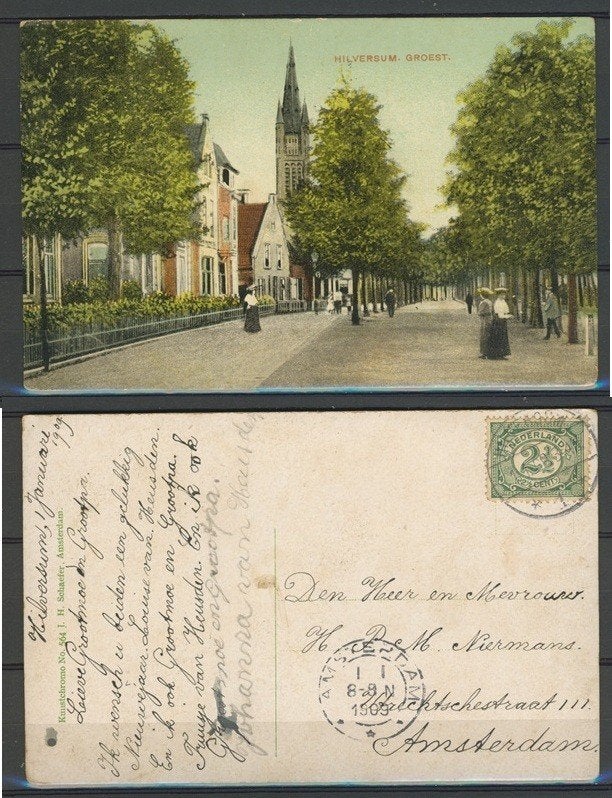 HILVERSUM. GROEST.
Hilversum, 1 Januari
Lieve Grootmoe en Grootpa.
Ik wensch u beiden een gelukkig
Nieuwejaar. Louise van Heusden.
En ik ook Grootmoe en Grootpa.
van Heusden En ik ook
en Grootpa.
Johanna van Heusden
Kunstchromo No. 364 J. H. Schaefer, Amsterdam.
NEDERLAND
2½
CENT
Den Heer en Mevrouw.
H. P. M. Niermans.
Utrechtschestraat 111.
Amsterdam.
AMSTERDAM
1 1
8-8 N
1909